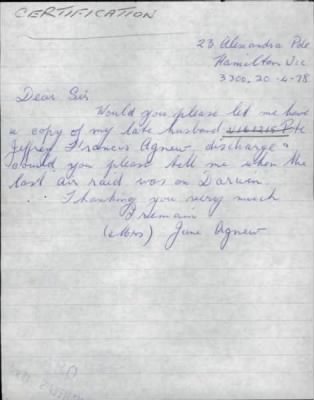 CERTIFICATION
23 Alexandra Pde
Hamilton Vic
3300. 20-4-78
Dear Sir
Would you please let me have
a copy of my late husband Pte
Jeffrey Francis Agnew, discharge &
could you please tell me when the
last air raid was on Darwin.
Thanking you very much
I remain
(Mrs) June Agnew